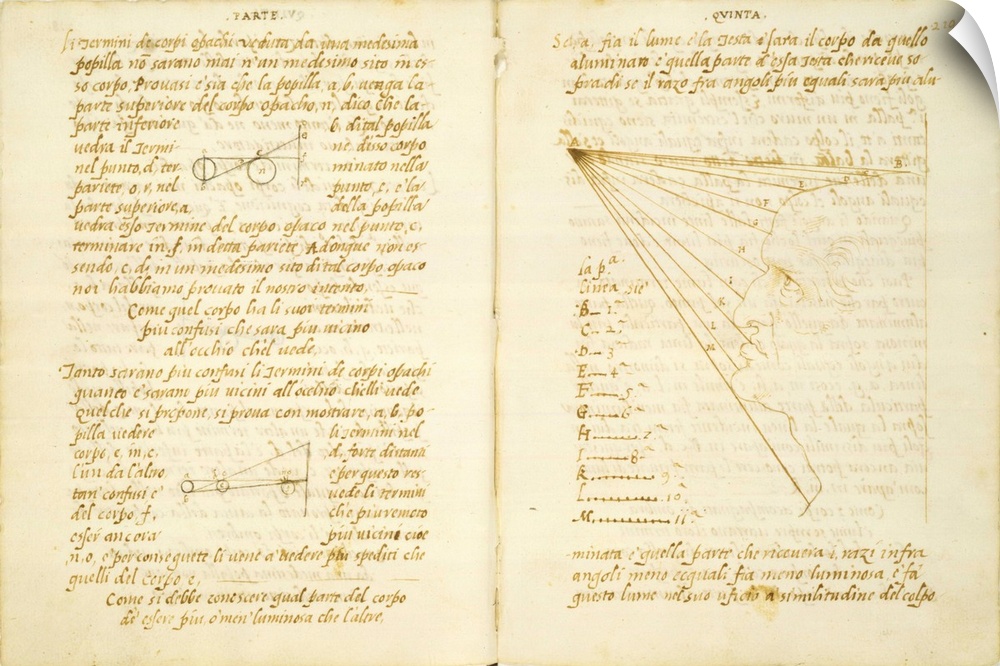 PARTE.
Li Termini de corpi opachi veduta da una medesima
popilla nō sarano mai n'un medesimo sito in es-
so corpo, Provasi e sia che la popilla, a, b, venga la
parte superiore del corpo opacho, n, dico che la-
parte inferiore b, di tal popilla
vedra il Termi ne disso corpo
nel punto, d, ter minato nella
pariete, o, r, nel punto, e, e la
parte superiore, a, della popilla
vedra esso Termine del corpo opaco nel punto, c,
terminare in, f, in detta pariete, Adonque non es-
sendo, c, d, in un medesimo sito di tal corpo, opaco
noi habbiamo provato il nostro intento,
Come quel corpo ha li suoi termini
piu confusi che sara piu vicino
all'occhio che'l vede,
Tanto sarano piu confusi li Termini de corpi opachi
quanto e sarani piu vicini all'occhio che'lli vede
Quel che si propone, si prova con mostrare, a, b, po
pilla vedere li termini nel
corpo, e, m, c, d, forte distanti
l'un da l'altro e per questo res
tan' confusi e vede li termini
del corpo f, che piu remoto
esser ancora piu vicini cioe
,n, o, e per conseguete li viene a vedere piu spediti che
quelli del corpo e,
Come si debbe conoscere qual parte del corpo
de' essere piu, o men' luminosa che l'altre,
QVINTA.
fia il lume e la Testa e sara il corpo da quello
aluminato e quella parte d'essa Testa che riceve so
pra di se il razo fra angoli piu equali sara piu alu-
A
B.
E
F
G
H
I
K
L
M
la p.ª
linea sie
B 1.ª
C 2.ª
D 3.ª
E 4.ª
F 5.ª
G 6.ª
H 7.ª
I 8.ª
K 9.ª
L 10.ª
M 11.ª
-minata e quella parte che ricevera i, razi infra
angoli meno ecquali, fia meno luminosa, e fa
questo lume nel suo uficio a similitudine del colpo